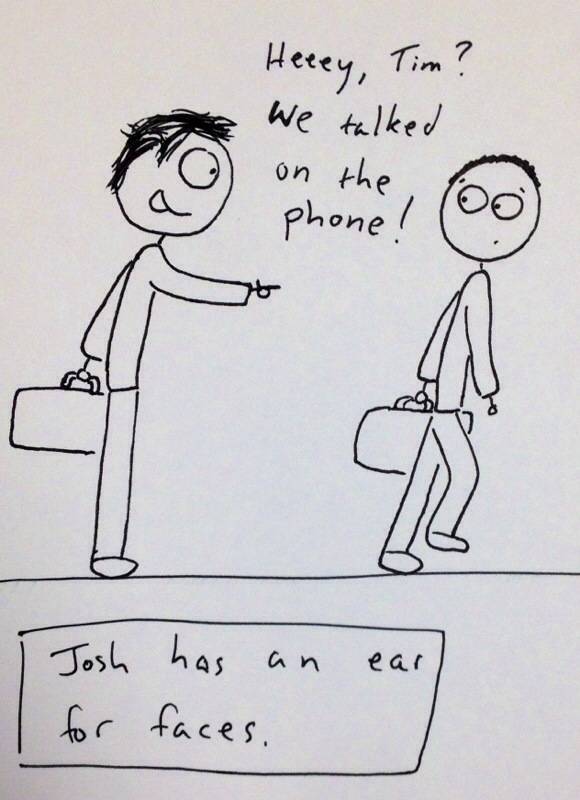 Heeey, Tim?
We talked
on the
phone!
Josh has an ear
for faces.